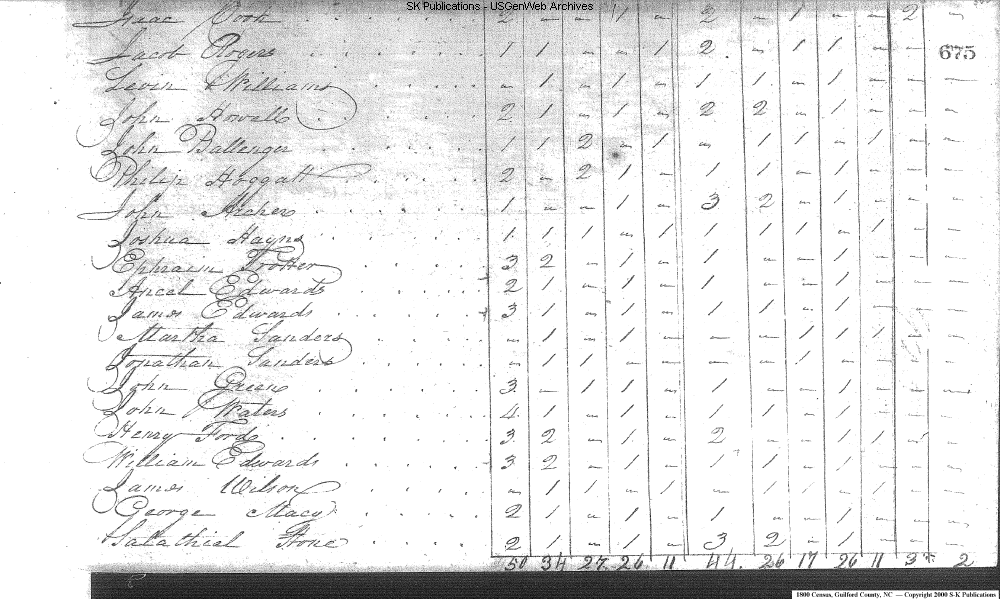 SK Publications - USGenWeb Archives
Isaac Cook 2 - - 1 - 2 - 1 - - 2 -
Jacob Rogers 1 1 - - 1 2 - 1 1 - - 675
Levin Williams - 1 - 1 - 1 1 - 1 - - -
John Howell 2 1 - 1 - 2 2 - 1 - - -
John Ballenger 1 1 2 - 1 - 1 1 - 1 - -
Philip Hoggatt 2 - 2 1 - 1 1 - 1 - - -
John Archer 1 - - 1 - 3 2 - 1 - - -
Joshua Hayns 1 1 1 - 1 1 1 1 - 1 - -
Ephraim Trotter 3 2 - 1 - 1 - - 1 - - -
Ancel Edwards 2 1 - 1 - 1 - - 1 - - -
James Edwards 3 1 - 1 - 1 1 - 1 - - -
Martha Sanders - 1 - 1 - - - 1 1 1 - -
Jonathan Sanders - 1 1 - - - - 1 - - - -
John Green 3 - 1 1 - 1 - - 1 - - -
John Waters 4 1 - 1 - 1 1 - 1 - - -
Henry Ford 3 2 - 1 - 2 - - 1 1 - -
William Edwards 3 2 - 1 - 1 1 - 1 - - -
James Wilson - 1 1 - 1 - 1 1 - 1 - -
George Macy 2 1 - 1 - 1 - - 1 - - -
Salathiel Stone 2 1 - 1 - 3 2 - 1 - - -
50 34 27 26 11 44 26 17 26 11 3 2
1800 Census, Guilford County, NC — Copyright 2000 S-K Publications